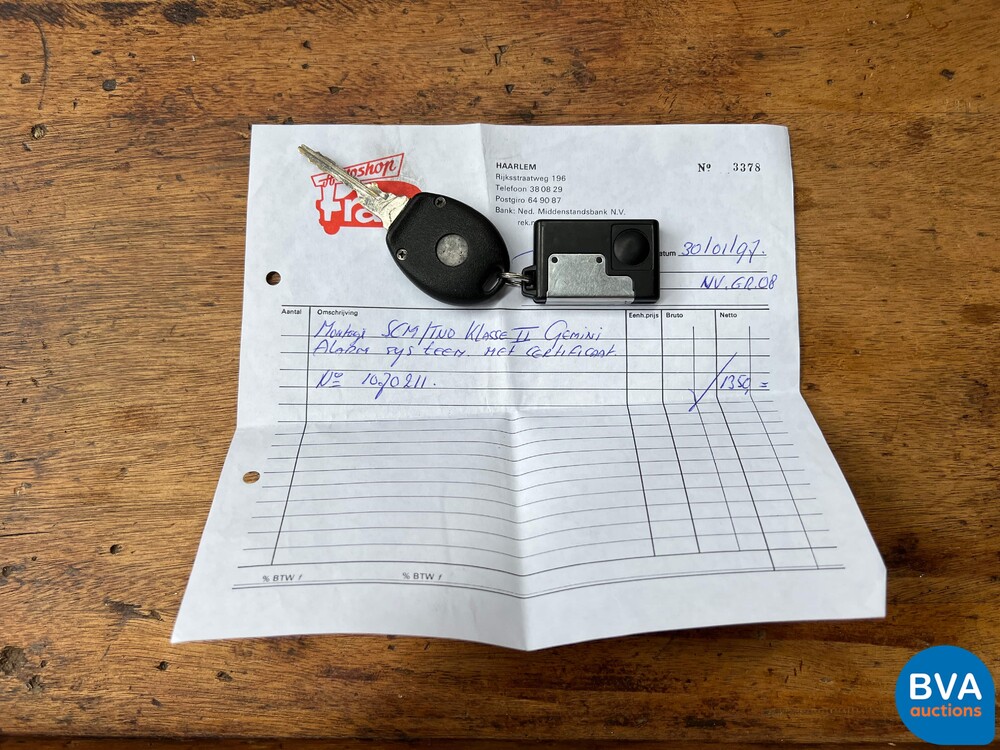 Autoshop
HAARLEM
Rijksstraatweg 196
Telefoon 38 08 29
Postgiro 64 90 87
Bank: Ned. Middenstandsbank N.V.
rek.n
Nº 3378
atum 30/01/97.
NV.GR.08
Aantal Omschrijving Eenh.prijs Bruto Netto
Montage SCM/TNO Klasse II Gemini
Alarm systeem met certificaat
Nº 1070211. 1350,=
% BTW f % BTW f
BVA
auctions